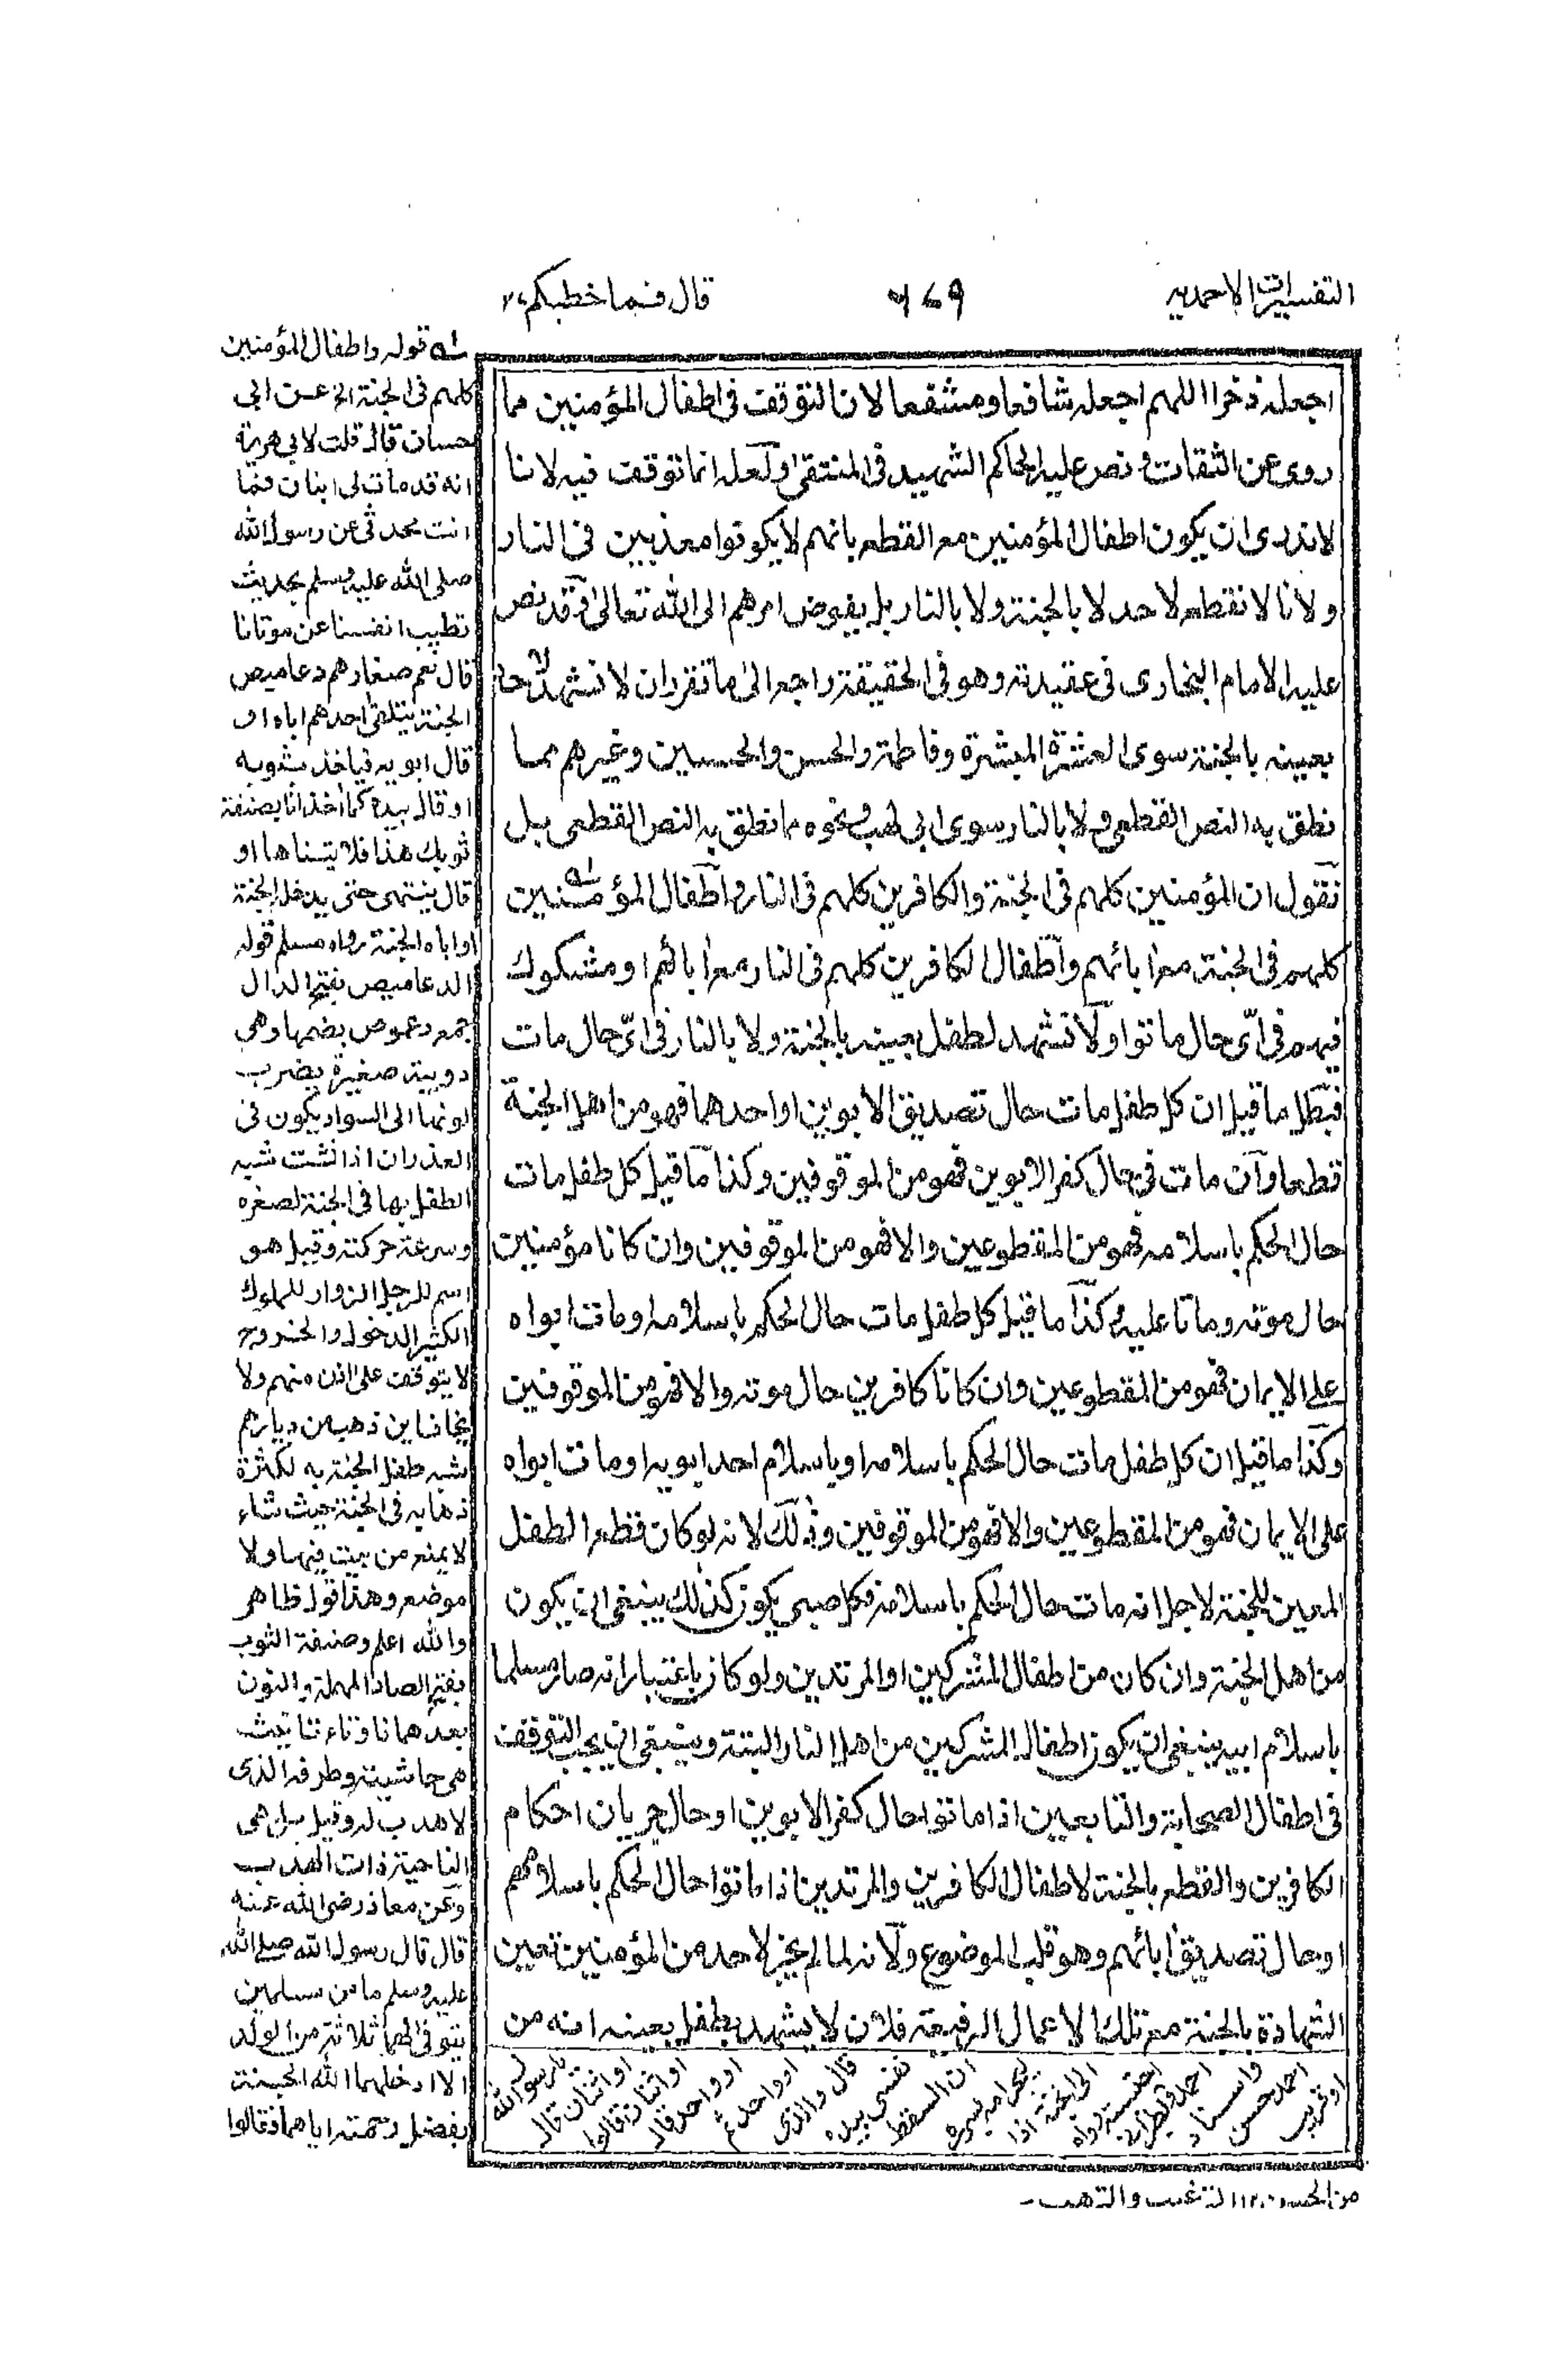 التفسيرات الاحمديه
٧٦٩
قال فما خطبكم ٢٧
اجعله ذخرا اللهم اجعله شافعا ومشفعا لان التوقف فى اطفال المؤمنين مما
روى عن الثقات ونص عليه الحاكم الشهيد فى المنتقى ولعله انما توقفت فيه لانا
لا ندرى ان يكون اطفال المؤمنين مع القطع بانهم لا يكونوا معذبين فى النار
ولانا لا نقطع لاحد لا بالجنة ولا بالنار بل يفوض امرهم الى الله تعالى وقد نص
عليه الامام البخارى فى عقيدته وهو فى الحقيقة راجع الى ما تقرر ان لا نشهد لاحد
بعينه بالجنة سوى العشرة المبشرة وفاطمة والحسن والحسين وغيرهم مما
نطق به النص القطعى ولا بالنار سوى ابى لهب ونحوه مما نطق به النص القطعى بل
نقول ان المؤمنين كلهم فى الجنة والكافرين كلهم فى النار واطفال المؤمنين
كلهم فى الجنة مع ابائهم واطفال الكافرين كلهم فى النار مع ابائهم او مشكوك
فيهم فى اىّ حال ماتوا ولا نشهد لطفل بعينه بالجنة ولا بالنار فى اىّ حال مات
فبطل ما قيل ان كل طفل مات حال تصديق الابوين او احدهما فهو من اهل الجنة
قطعا وان مات فى حال كفر الابوين فهو من الموقوفين وكذا ما قيل كل طفل مات
حال الحكم باسلامه فهو من المقطوعين والا فهو من الموقوفين وان كانا مؤمنين
حال موته وماتا عليه وكذا ما قيل كل طفل مات حال الحكم باسلامه او مات ابواه
على الايمان فهو من المقطوعين وان كانا كافرين حال موته والا فهو من الموقوفين
وكذا ما قيل ان كل طفل مات حال الحكم باسلامه او باسلام احد ابويه او مات ابواه
على الايمان فهو من المقطوعين والا فهو من الموقوفين وذلك لانه لو كان قطع الطفل
المعين للجنة لاجل انه مات حال الحكم باسلامه فكل صبى يكون كذلك ينبغى ان يكون
من اهل الجنة وان كان من اطفال المشركين او المرتدين ولو كان باعتبار انه صار مسلما
باسلام ابيه ينبغى ان يكون اطفال المشركين من اهل النار البتة وينبغى ان يجب التوقف
فى اطفال الصحابة والتابعين اذا ماتوا حال كفر الابوين او حال جريان احكام
الكافرين والقطع بالجنة لاطفال الكافرين والمرتدين اذا ماتوا حال الحكم باسلامهم
او حال تصديق ابائهم وهو قلب الموضوع ولانه لما لم يجز لاحد من المؤمنين تعين
الشهادة بالجنة مع تلك الاعمال الرفيعة فلان لا يشهد بطفل بعينه انه من
له قوله واطفال المؤمنين
كلهم فى الجنة الخ عن ابى
حسان قال قلت لابى هريرة
انه قد مات لى ابنان فما
انت محدثى عن رسول الله
صلى الله عليه وسلم بحديث
تطيب انفسنا عن موتانا
قال نعم صغارهم دعاميص
الجنة يتلقى احدهم اباه او
قال ابويه فياخذ بثوبه
او قال بيده كما أخذ انا بصنفة
ثوبك هذا فلا يتناها او
قال ينتهى حتى يدخل الجنة
او اباه الجنة رواه مسلم قوله
الدعاميص بفتح الدال
جمع دعموص بضمها وهى
دويبة صغيرة يضرب
لونها الى السواد يكون فى
الغدران اذا نشت شبه
الطفل بها فى الجنة لصغره
وسرعة حركته وقيل هو
اسم للرجل الزوار للملوك
الكثير الدخول والخروج
لا يتوقف على اذن منهم ولا
يخاف اين ذهب من ديارهم
شبه طفل الجنة به لكثرة
ذهابه فى الجنة حيث شاء
لا يمنع من بيت فيها ولا
موضع وهذا قول ظاهر
والله اعلم وصنفة الثوب
بفتح الصاد المهملة والنون
بعدهما فا وتاء تانيث
هى حاشيته وطرفه الذى
لا هدب له وقيل بل هى
الناحية ذات الهدب
وعن معاذ رضى الله عنه
قال قال رسول الله صلى الله
عليه وسلم ما من مسلمين
يتوفى لهما ثلاثة من الولد
الا ادخلهما الله الجنة
بفضل رحمته اياهما فقالوا
يا رسول الله
او اثنان قال
او اثنان قالوا
او واحد قال
او واحد ثم
قال والذى
نفسى بيده
ان السقط
ليجر امه بسرره
الى الجنة اذا
احتسبته رواه
احمد والطبرانى
واسناد
احمد حسن
او قريب
من الحسن ١٢ الترغيب والترهيب